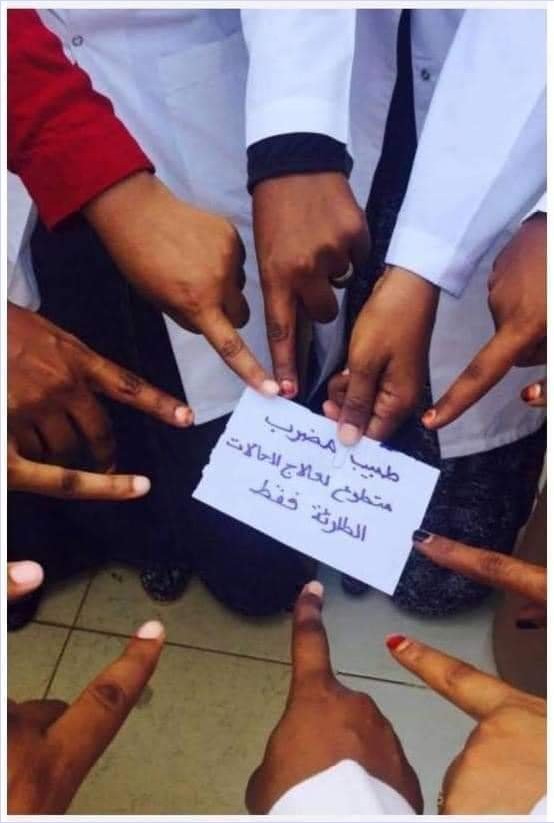 طبيب مضرب
متطوع لعلاج الحالات
الطارئة فقط